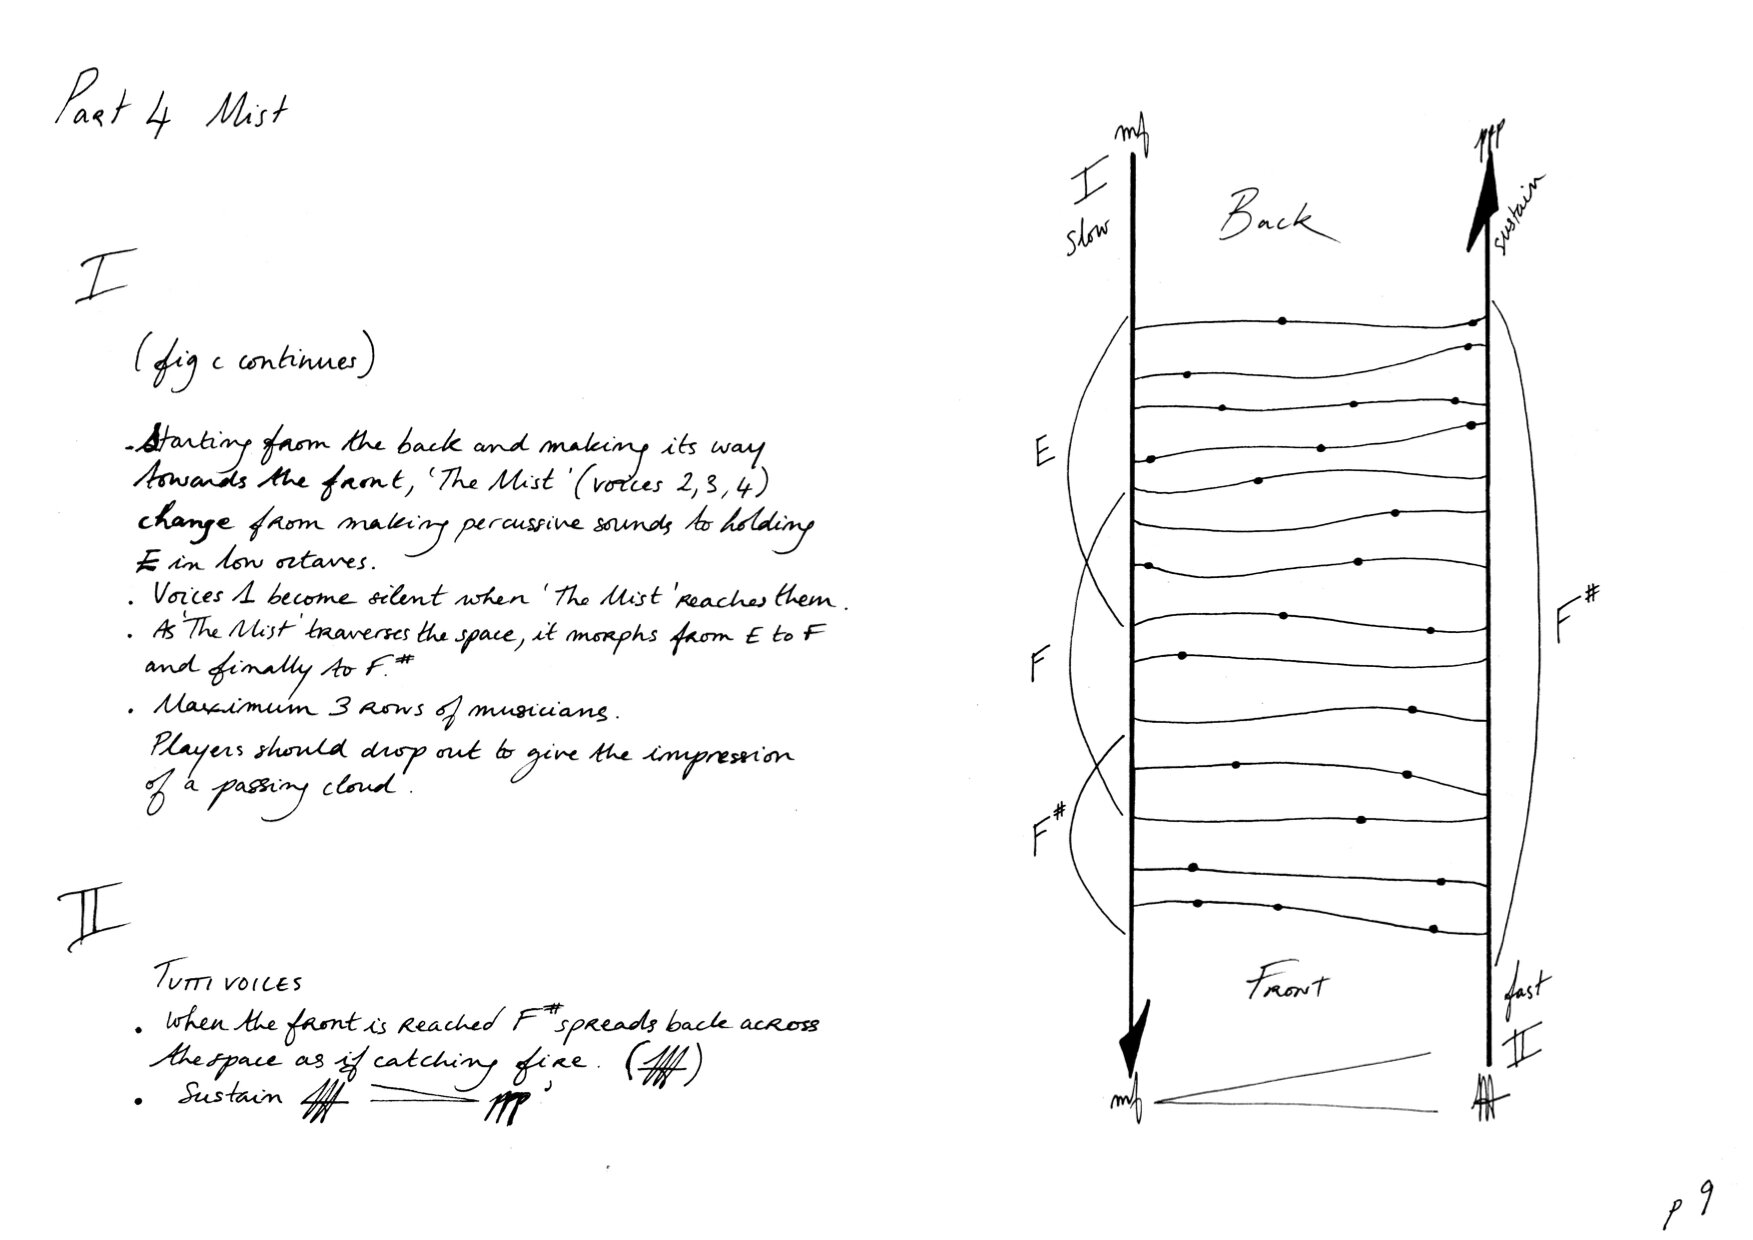 Part 4 Mist
I
(fig c continues)
- Starting from the back and making its way
towards the front, 'The Mist' (voices 2, 3, 4)
change from making percussive sounds to holding
E in low octaves.
. Voices 1 become silent when 'The Mist' reaches them.
. As 'The Mist' traverses the space, it morphs from E to F
and finally to F.#
. Maximum 3 rows of musicians.
Players should drop out to give the impression
of a passing cloud.
II
TUTTI VOICES
. When the front is reached F# spreads back across
the space as if catching fire. (fff)
. Sustain fff ppp '
mf
ppp
I
slow
Back
sustain
E
F
F#
F#
FRONT
fast
II
mf
fff
p 9